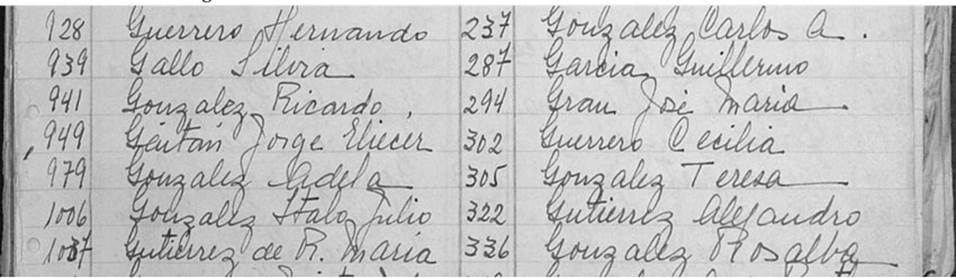 928 Guerrero Hernando 237 Gonzalez Carlos A.
939 Gallo Silvia 287 Garcia Guillermo
941 Gonzalez Ricardo. 294 Grau José Maria
949 Gaitán Jorge Eliecer 302 Guerrero Cecilia
979 Gonzalez Adela 305 Gonzalez Teresa
1006 Gonzalez Italo Julio 322 Gutierrez Alejandro
1037 Gutiérrez de R. Maria 336 Gonzalez Rosalba